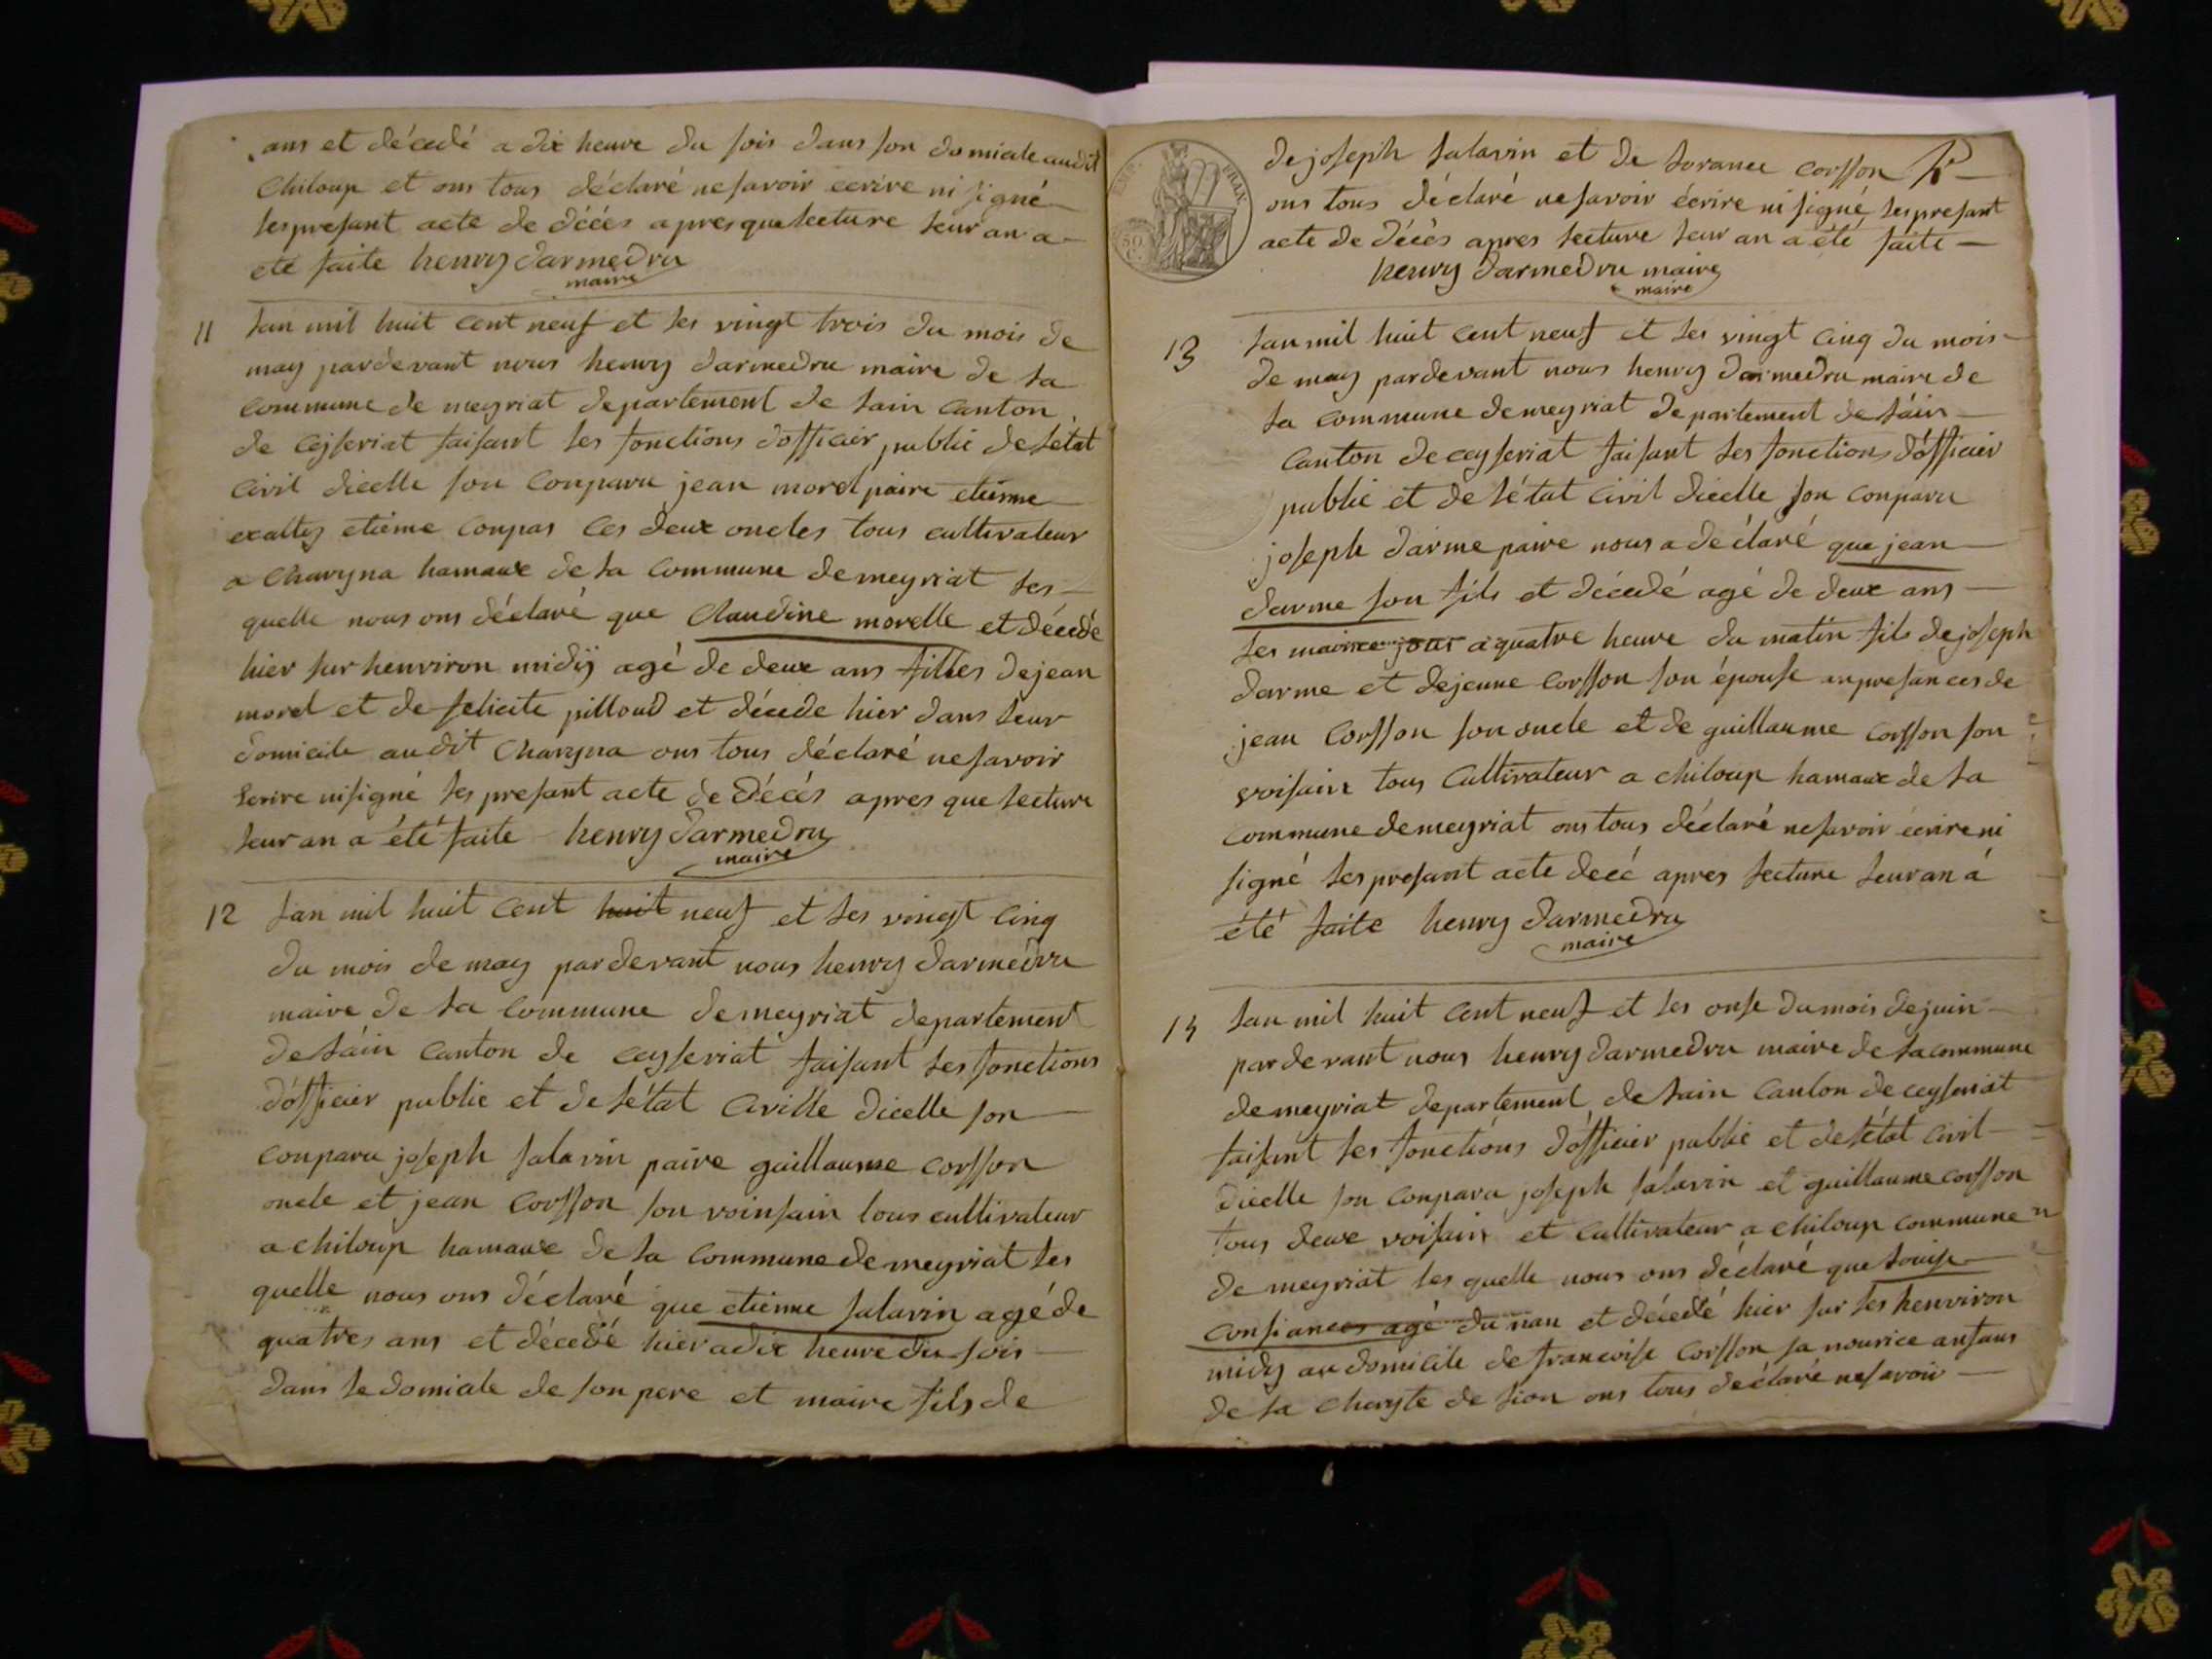 ans et décedé a dix heure du soir dans son domicile audit
Chiloup et ons tous déclaré ne savoir ecrire ni signé
les presant acte de décés apres que lecture leur an a
eté faite henry darmedru
maire
11 Lan mil huit cent neuf et les vingt trois du mois de
may pardevant nous henry darmedru maire de la
commune de meyriat departement de lain canton
de ceyseriat faisant les fonctions dofficier public de létat
civil dicelle son conparu jean morel paire etienne
etiénne coupas ces deux oncles tous cultivateur
a Chavyna hamaux de la commune de meyriat les
quelle nous ons déclaré que Claudine morelle et décedé
hier sur henviron midÿ agé de deux ans filles de jean
morel et de felicite pilloud et décede hier dans leur
domicile audit Chavyna ons tous déclaré ne savoir
Ecrire ni signé les presant acte de décés apres que lecture
leur an a été faite henry darmedru
maire
12 Lan mil huit cent huit neuf et les vingt cinq
du mois de may pardevant nous henry darmedru
maire de la commune de meyriat departement
de láin canton de ceyseriat faisant les fonctions
dófficier public et de létat civille dicelle son
conparu joseph salavin paire guillaume corsson
oncle et jean corsson son voinsain tous cultivateur
a chiloup hamaux de la commune de meyriat les
quelle nous ons déclaré que etienne salavin agé de
quatres ans et décedé hier a dix heure du soir
dans le domicile de son pere et maire fils de
de joseph salavin et de lorance corsson
ons tous déclaré ne savoir écrire ni signé les presant
acte de décés apres lecture leur an a été faite
henry darmedru maire
maire
13 Lan mil huit cent neuf et les vingt cinq du mois
de may pardevant nous henry darmedru maire de
la commune de meyriat departement de láin
canton de ceyseriat faisant les fonctions dófficier
public et de létat civil dicelle son conparu
joseph darme paire nous a déclaré que jean
darme son fils et décedé agé de deux ans
les jour a quatre heure du matin fils de joseph
darme et de jeanne corsson son épouse an presances de
jean corsson son oncle et de guillaume corsson son
voisain tous cultivateur a chiloup hamaux de la
commune de meyriat ons tous déclaré ne savoir écrire ni
signé les presant acte decé apres lecture leur an á
été faite henry darmedru
maire
14 Lan mil huit cent neuf et les onse du mois de juin
pardevant nous henry darmedru maire de la commune
de meyriat departement de lain canton de ceyseriat
faisant les fonctions dófficier public et de létat civil
dicelle son conparu joseph salavin et guillaume corsson
tous deux voisain et cultivateur a chiloup commune
de meyriat les quelle nous ons déclaré que louise
confiances agé du nan et décedé hier sur les henviron
midy au domicile de francoise corsson sa nourice anfans
de la charyte de lion ons tous déclaré ne savoir